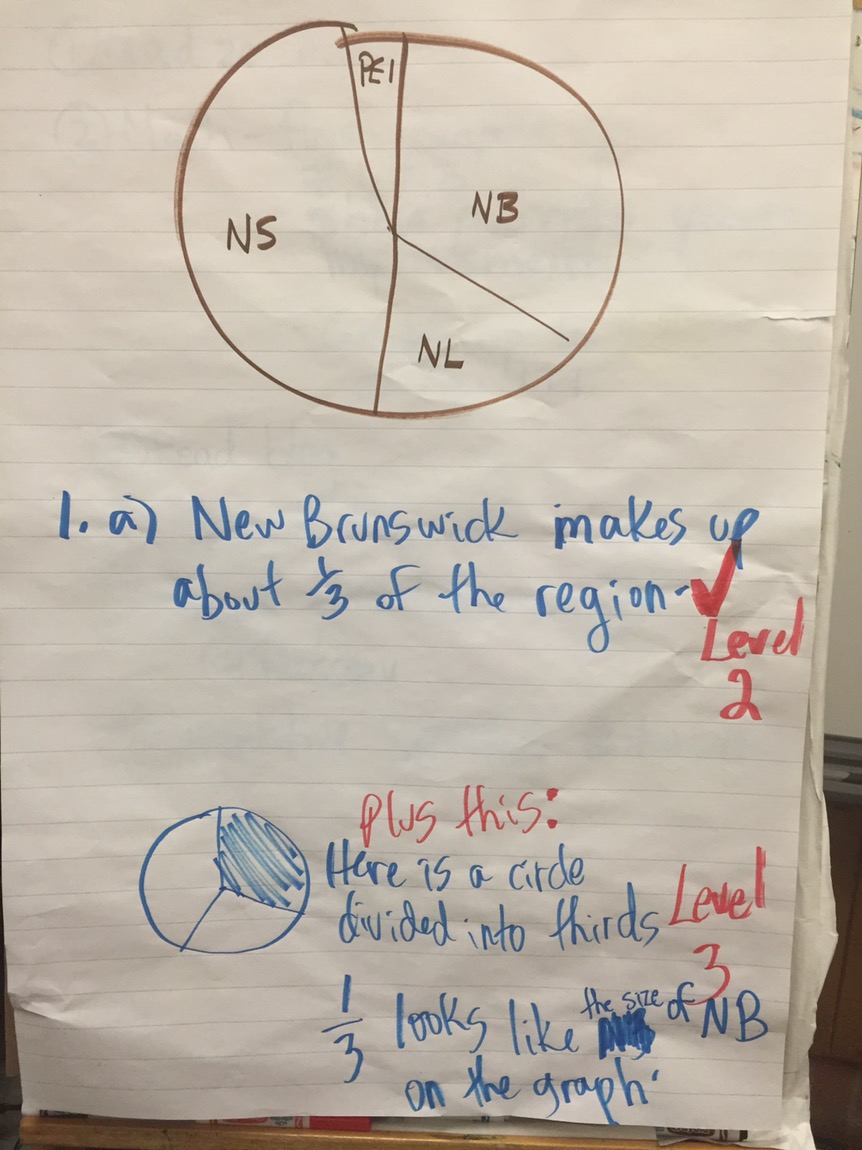 PEI
NS
NB
NL
1. a) New Brunswick makes up
about 1/3 of the region. ✓
Level
2
Plus this:
Here is a circle
divided into thirds
Level
3
1/3 looks like the size of NB
on the graph.